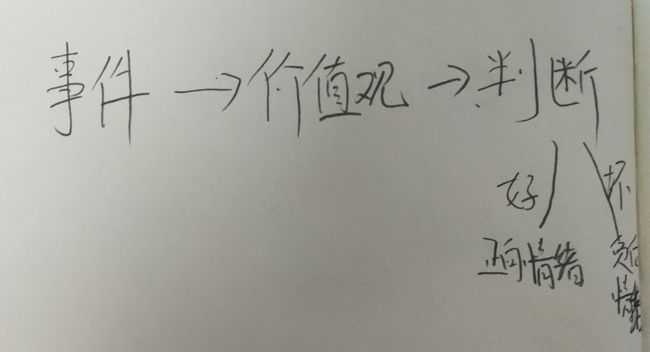 事件 → 价值观 → 判断
好 坏
正向情绪 负向情绪